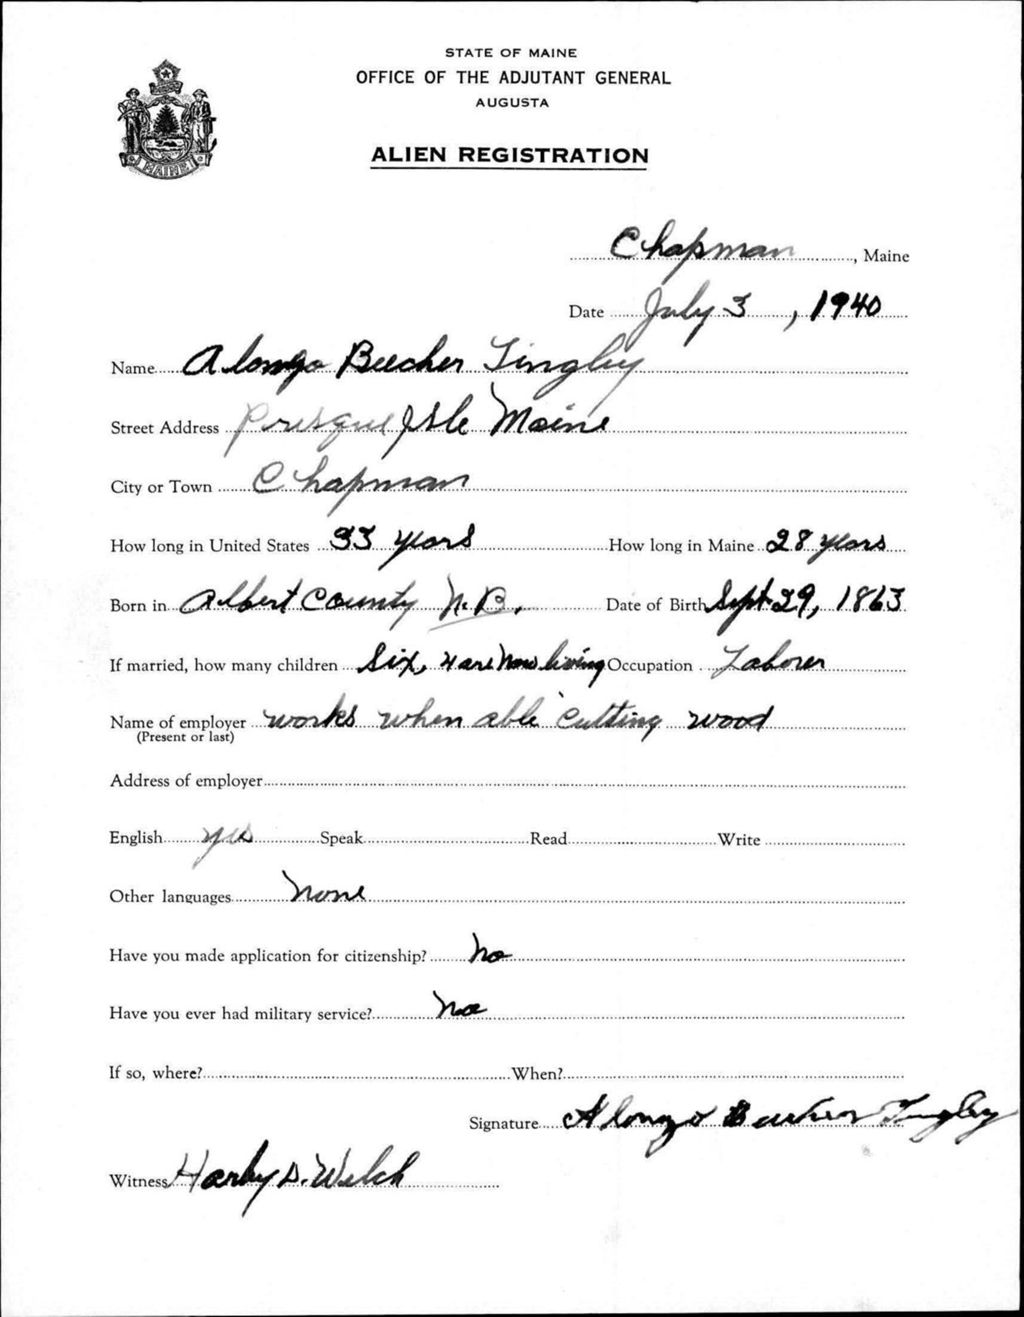 STATE OF MAINE
OFFICE OF THE ADJUTANT GENERAL
AUGUSTA
ALIEN REGISTRATION
MAINE
Chapman, Maine
Date July 3, 1940
Name Alonzo Beecher Tingley
Street Address Presque Isle Maine
City or Town Chapman
How long in United States 33 years How long in Maine 28 years
Born in Albert County N.B. Date of Birth Sept 29, 1863
If married, how many children Six, 4 are now living Occupation Laborer
Name of employer works when able cutting wood
(Present or last)
Address of employer
English yes Speak Read Write
Other languages None
Have you made application for citizenship? No
Have you ever had military service? No
If so, where? When?
Signature Alonzo Beecher Tingley
Witness Harly D. Welch